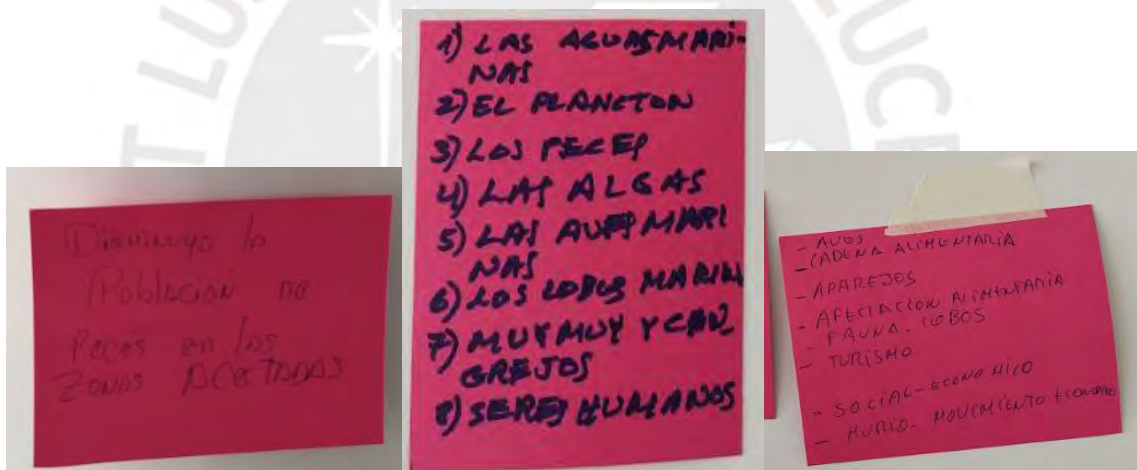 Disminuyo la
Población de
Peces en las
Zonas AFECTADAS
1) LAS AGUAS MARI-
NAS
2) EL PLANCTON
3) LOS PECES
4) LAS ALGAS
5) LAS AVES MARI
NAS
6) LOS LOBOS MARIN
7) MUY MUY Y CAN
GREJOS
8) SERES HUMANOS
- AVES
- CADENA ALIMENTARIA
- APAREJOS
- AFECTACION ALIMENTARIA
- FAUNA - LOBOS
- TURISMO
- SOCIAL - ECONOMICO
- MURIO - MOVIMIENTO ECONOMICO